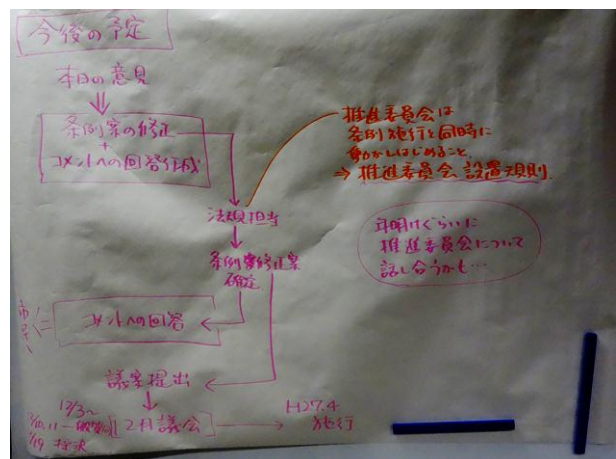 今後の予定
本日の意見
条例案の修正
+
コメントへの回答作成
推進委員会は
条例施行と同時に
動かしはじめること。
⇒ 推進委員会 設置規則
法規担当
条例案修正案
確定
年明けぐらいに
推進委員会について
話し合うかも…
コメントへの回答
議案提出
[2月議会]
H27.4
施行